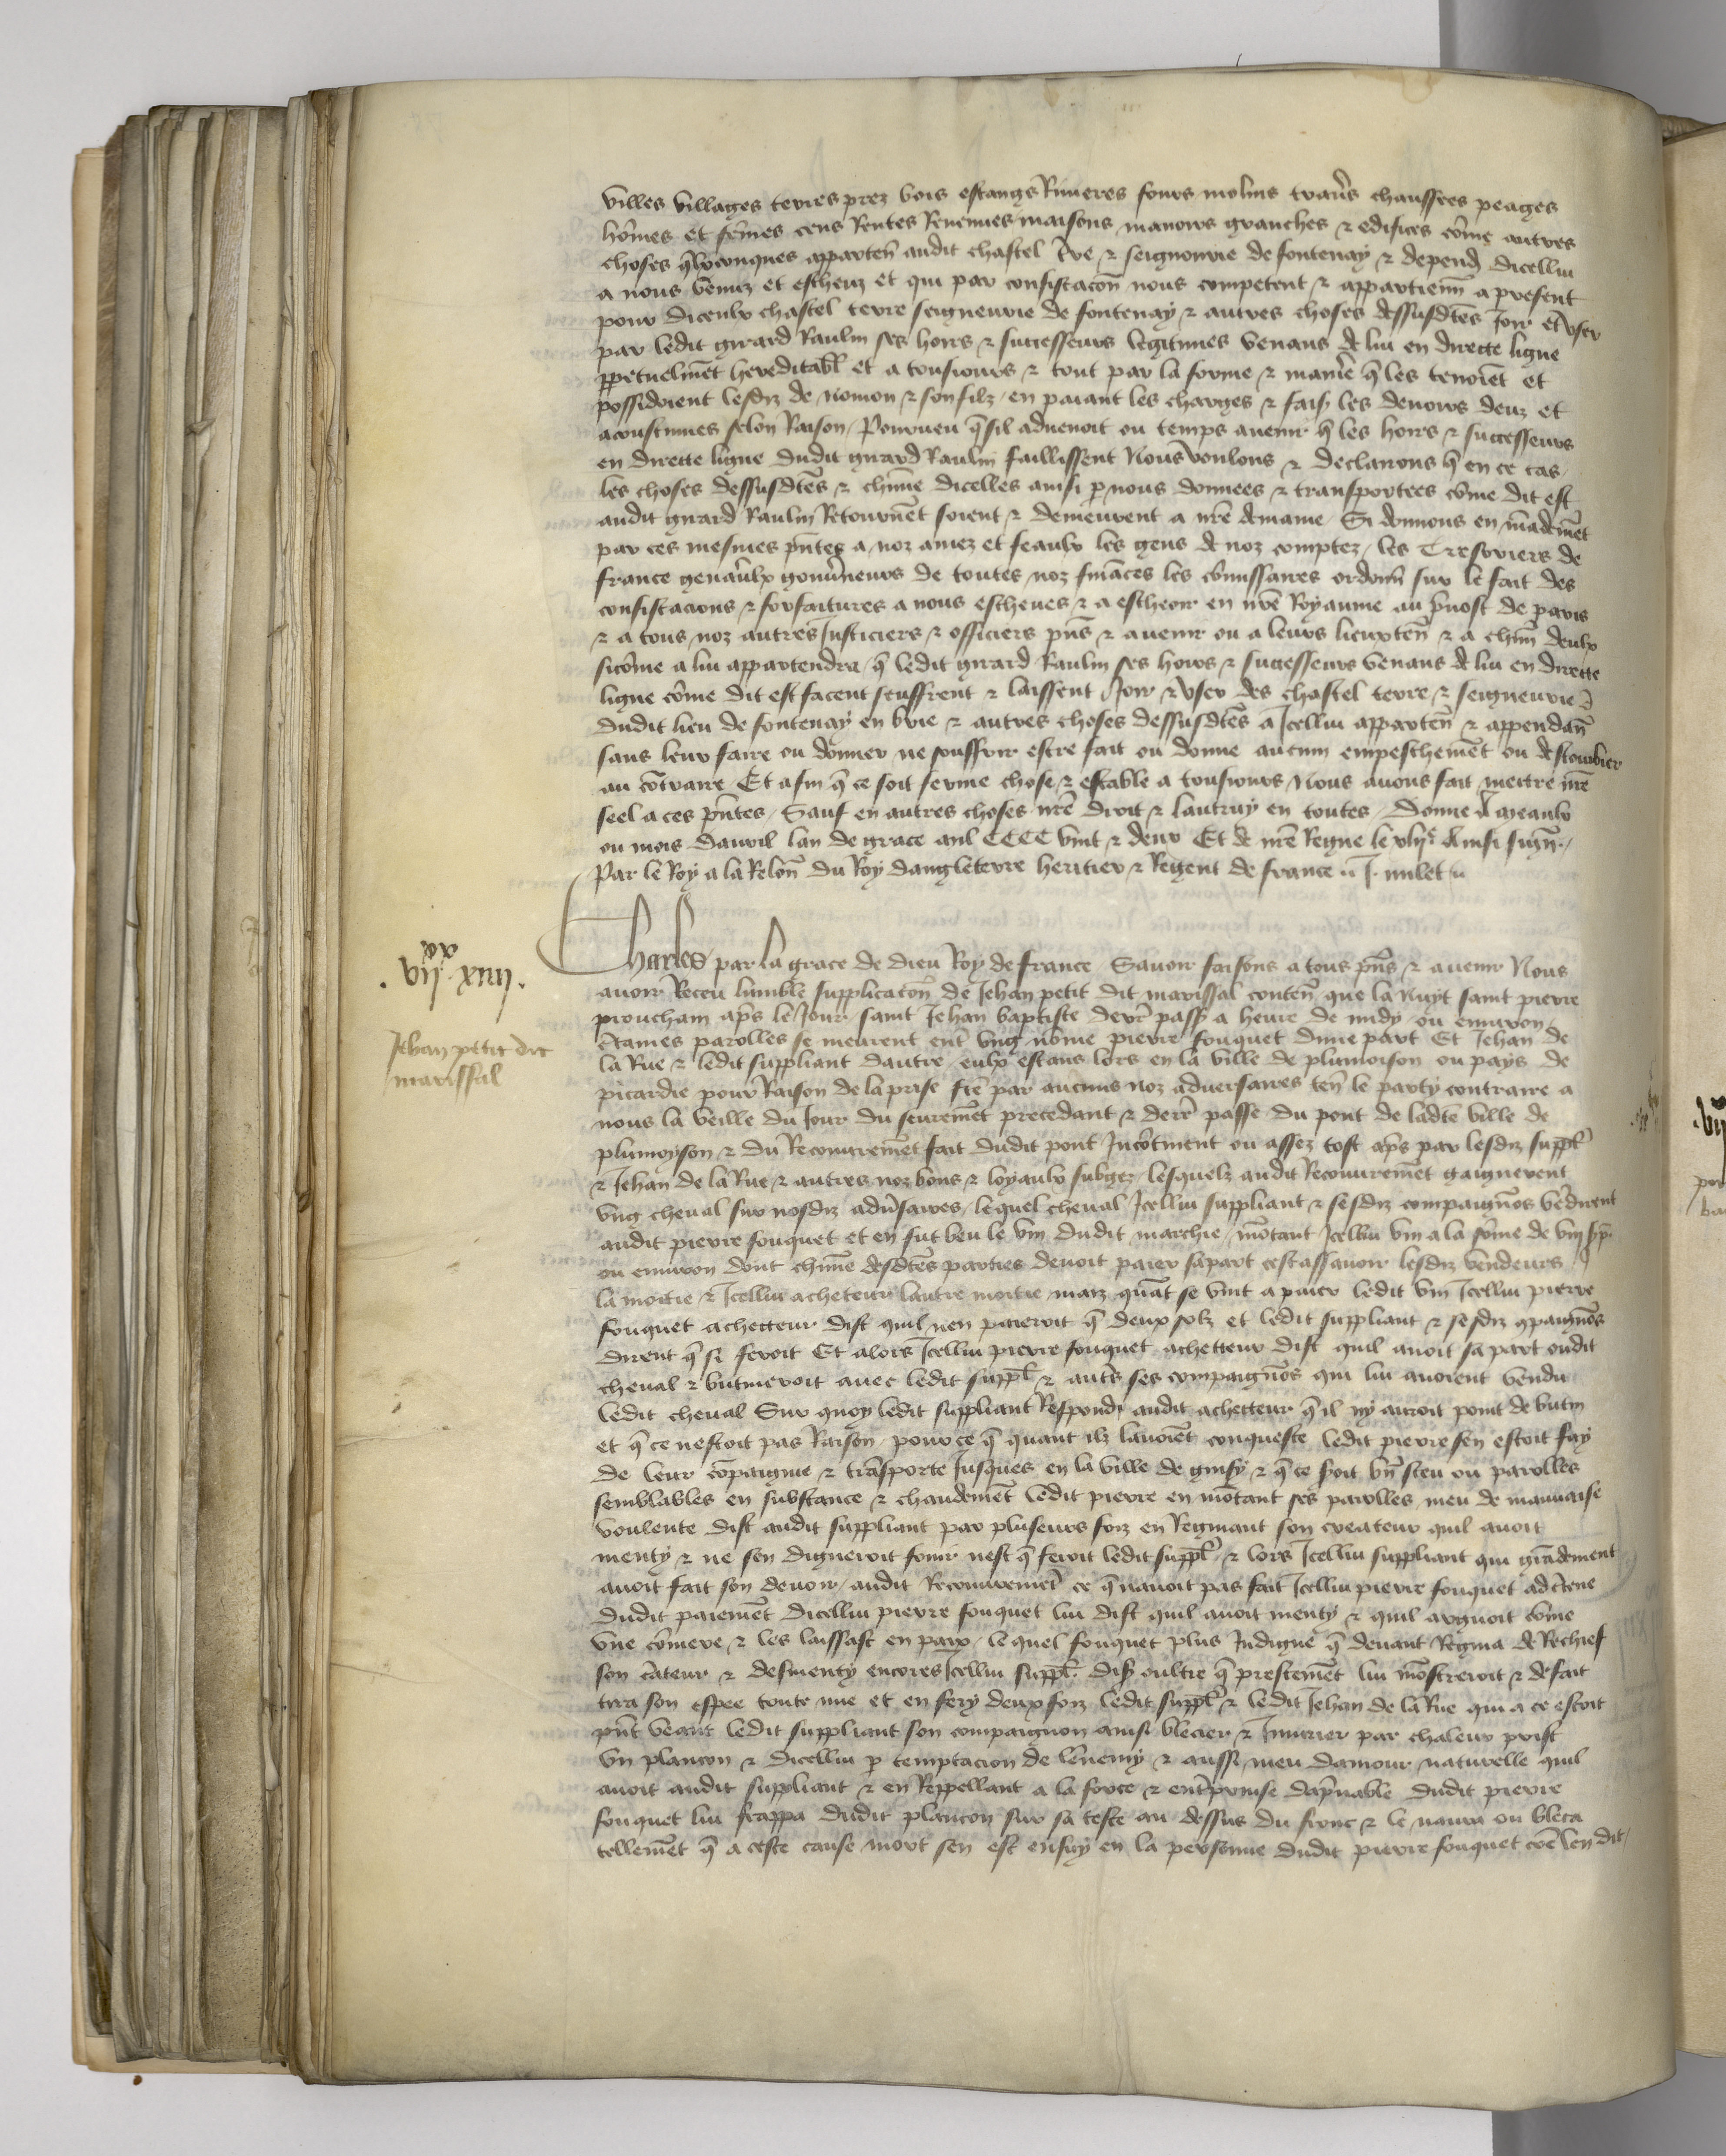 villes villages terres prez bois estangs Rivieres fours molins travs chaussees peages
hōmes et fēmes cens Rentes Revenues maisons manoirs granches & edifices cōme autres
choses q̄lxconques apparten̄ audit chastel t̄re & seignourie de fontenay & depend̄ dicellui
a nous venuz et escheuz et qui par confiscacōn nous competent & appartienn̄ a present
pour diceulx chastel terre seigneurie de fontenay & autres choses dessusdtēs Joir et User
par ledit girard Raulin ses hoirs & successeurs legitimes venans de lui en directe ligne
ꝑpetuelmēt hereditabl̄ et a tousiours & tout par la forme & manie᷑ q̄ les tenoiēt et
possidoient lesdiz de nomon & son filz en paiant les charges & fais̄ les devoirs deuz et
acoustumes selon Raison / Pourveu q̄ sil advenoit ou temps avenir q̄ les hoirs & successeurs
en directe ligne dudit girard Raulin faillissent Nous voulons & declarons q̄ en ce cas
les choses dessusdtēs & chūne dicelles ainsi ꝑ nous donnees & transportees cōme dit est
audit girard Raulin Retournēt soient & demeurent a nrē demaine Si donnons en mādemēt
par ces mesmes pn̄tes a noz amez et feaulx les gens de noz comptez / les Tresoriers de
france genāulx gouv̄neurs de toutes noz fināces les cōmissaires ordonn̄ sur le fait des
confiscacions & forfaitures a nous escheues & a escheoir en nrē Royaume au p̄vost de paris
& a tous noz autres Justiciers & officiers pn̄s & avenir ou a leurs lieuxten̄ & a chūn deulx
sicōme a lui appartendra q̄ ledit girard Raulin ses hoirs & successeurs venans de lui en directe
ligne cōme dit est facent seuffrent & laissent Joir & User des chastel terre & seigneurie
dudit lieu de fontenay en brie & autres choses dessusdtēs a Jcellui apparten̄ & appendan̄
sans leur faire ou donner ne souffrir estre fait ou donne aucun empeschemēt ou destourbier
au cōtraire Et afin q̄ ce soit ferme chose & estable a tousiours Nous avons fait mettre nrē
seel a ces pn̄tes / Sauf en autres choses nrē droit & lautruy en toutes / Donne a meaulx
ou mois davril lan de grace mil CCCC vint & deux Et de nrē Regne le xlijᵉ Ainsi sign̄ /
Par le Roy a la Relōn du Roy dangleterre heritier & Regent de france .. J. milet ..
.vijˣˣ xiiij.
Jehan petit dit
marissal
Charles par la grace de dieu Roy de france Savoir faisons a tous pn̄s & avenir Nous
avoir Receu lumble supplicacōn de Jehan petit dit marissal conten̄ que la Nuyt saint pierre
prouchain ap̄s le Jour saint Jehan baptiste derr̄ pass̄ a heure de midy ou environ
c̄taines parolles se meurent ent̄ ung nōme pierre fouquet dune part Et Jehan de
la Rue & ledit suppliant dautre / eulx estans lors en la ville de plumoison ou pays de
picardie pour Raison de la prise fc̄e par aucuns noz adversaires ten̄ le party contraire a
nous la veille du Jour du seuremēt precedant & derr̄ passe du pont de ladte ville de
plumoyson & du Recouvremēt fait dudit pont Jncōtinent ou assez tost ap̄s par lesdiz suppl̄
& Jehan de la Rue & autres noz bons & loyaulx subgez / lesquelz audit Recouvremēt gaignerent
ung cheval sur nosdiz adv̄saires / lequel cheval Jcellui suppliant & sesdiz compaignōs vēdirent
audit pierre fouquet et en fut beu le vin dudit marchie / mōtant Jcellui vin a la sōme de
ou environ dont chūne desdtēs parties devoit paier sa part cestassavoir lesdiz vendeurs
la moitie & Jcellui acheteur lautre moitie maiz quāt se vint a paier ledit vin Jcellui pierre
fouquet achetteur dist quil nen paieroit q̄ deux solz et ledit suppliant & sesdiz ꝯpaignōs
dirent q̄ si feroit Et alors Jcellui pierre fouquet achetteur dist quil avoit sa part oudit
cheval & butineroit avec ledit suppl̄ & aut̄s ses compaignōs qui lui avoient vendu
ledit cheval Sur quoy ledit suppliant Respondi audit achetteur q̄ il ny auroit point de butin
et q̄ ce nestoit pas Raison / pource q̄ quant ilz lavoiēt conqueste ledit pierre sen estoit fuy
de leur cōpaignie & trāsporte Jusques en la ville de guisy & q̄ ce soit bn̄ sceu ou parolles
semblables en substance & chaudemēt ledit pierre en mōtant ses parolles meu de mauvaise
voulente dist audit suppliant par pluseurs foiz en Regniant son createur quil avoit
menty & ne sen digneroit fouir nest q̄ feroit ledit suppl̄ & lors Jcellui suppliant qui grādement
avoit fait son devoir / audit Recouvremēt ce q̄ navoit pas fait Jcellui pierre fouquet
dudit paiemēt dicellui pierre fouquet lui dist quil avoit menty & quil arguoit cōme
une cōmere & les laissast en paix / le quel fouquet plus Jndigne q̄ devant Regnia de Rechief
son c̄ateur & desmenty encores Jcellui suppl̄ dis̄ oultre q̄ prestemēt lui mōstreroit & de fait
tira son espee toute nue et en fery deux foiz ledit suppl̄ & ledit Jehan de la Rue qui a ce estoit
pn̄t veant ledit suppliant son compaignon ainsi blecier & Jniurier par chaleur prist
un plancon & dicellui ꝑ temptacion de lēnemy & aussi meu damour naturelle quil
avoit audit suppliant & en Reppellant a la force & ent̄prinse dāpnable dudit pierre
fouquet lui frappa dudit plancon sur sa teste au dessus du front & le navra ou bleca
tellemēt q̄ a ceste cause mort sen est ensuy en la personne dudit pierre fouquet cōe len dit /